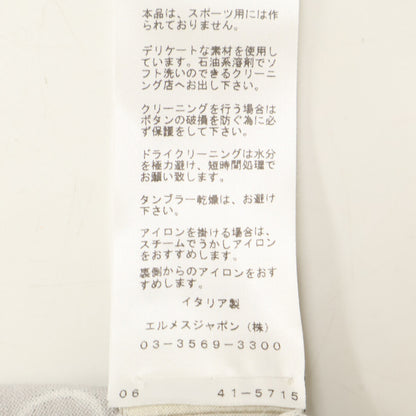 本品は、スポーツ用には作
られておりません。
デリケートな素材を使用し
ています。石油系溶剤でソ
フト洗いのできるクリーニ
ング店へお出し下さい。
クリーニングを行う場合は
ボタンの破損を防ぐ為に必
ず保護をして下さい。
ドライクリーニングは水分
を極力避け、短時間処理で
お願い致します。
タンブラー乾燥は、お避け
下さい。
アイロンを掛ける場合は、
スチームでうかしアイロン
をおすすめします。
裏側からのアイロンをおす
すめします。
イタリア製
エルメスジャポン（株）
03-3569-3300
06 41-5715